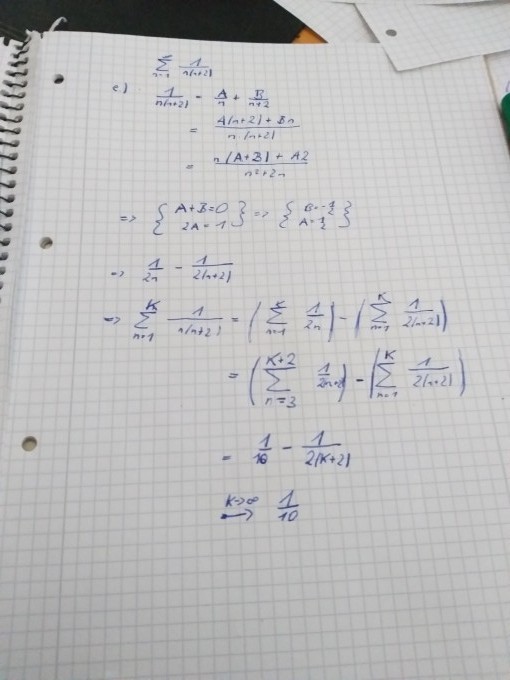 ∞∑n=1 1/n(n+2)
c.) 1/n(n+2) = A/n + B/n+2
= A(n+2) + Bn / n(n+2)
= n(A+B) + A2 / n²+2n
=> { A+B=0 2A=1 } => { B=-1/2 A=1/2 }
=> 1/2n - 1/2(n+2)
=> K∑n=1 1/n(n+2) = ( K∑n=1 1/2n ) - ( K∑n=1 1/2(n+2) )
= ( K+2∑n=3 1/2n+2 ) - ( K∑n=1 1/2(n+2) )
= 1/10 - 1/2(K+2)
K->∞ → 1/10